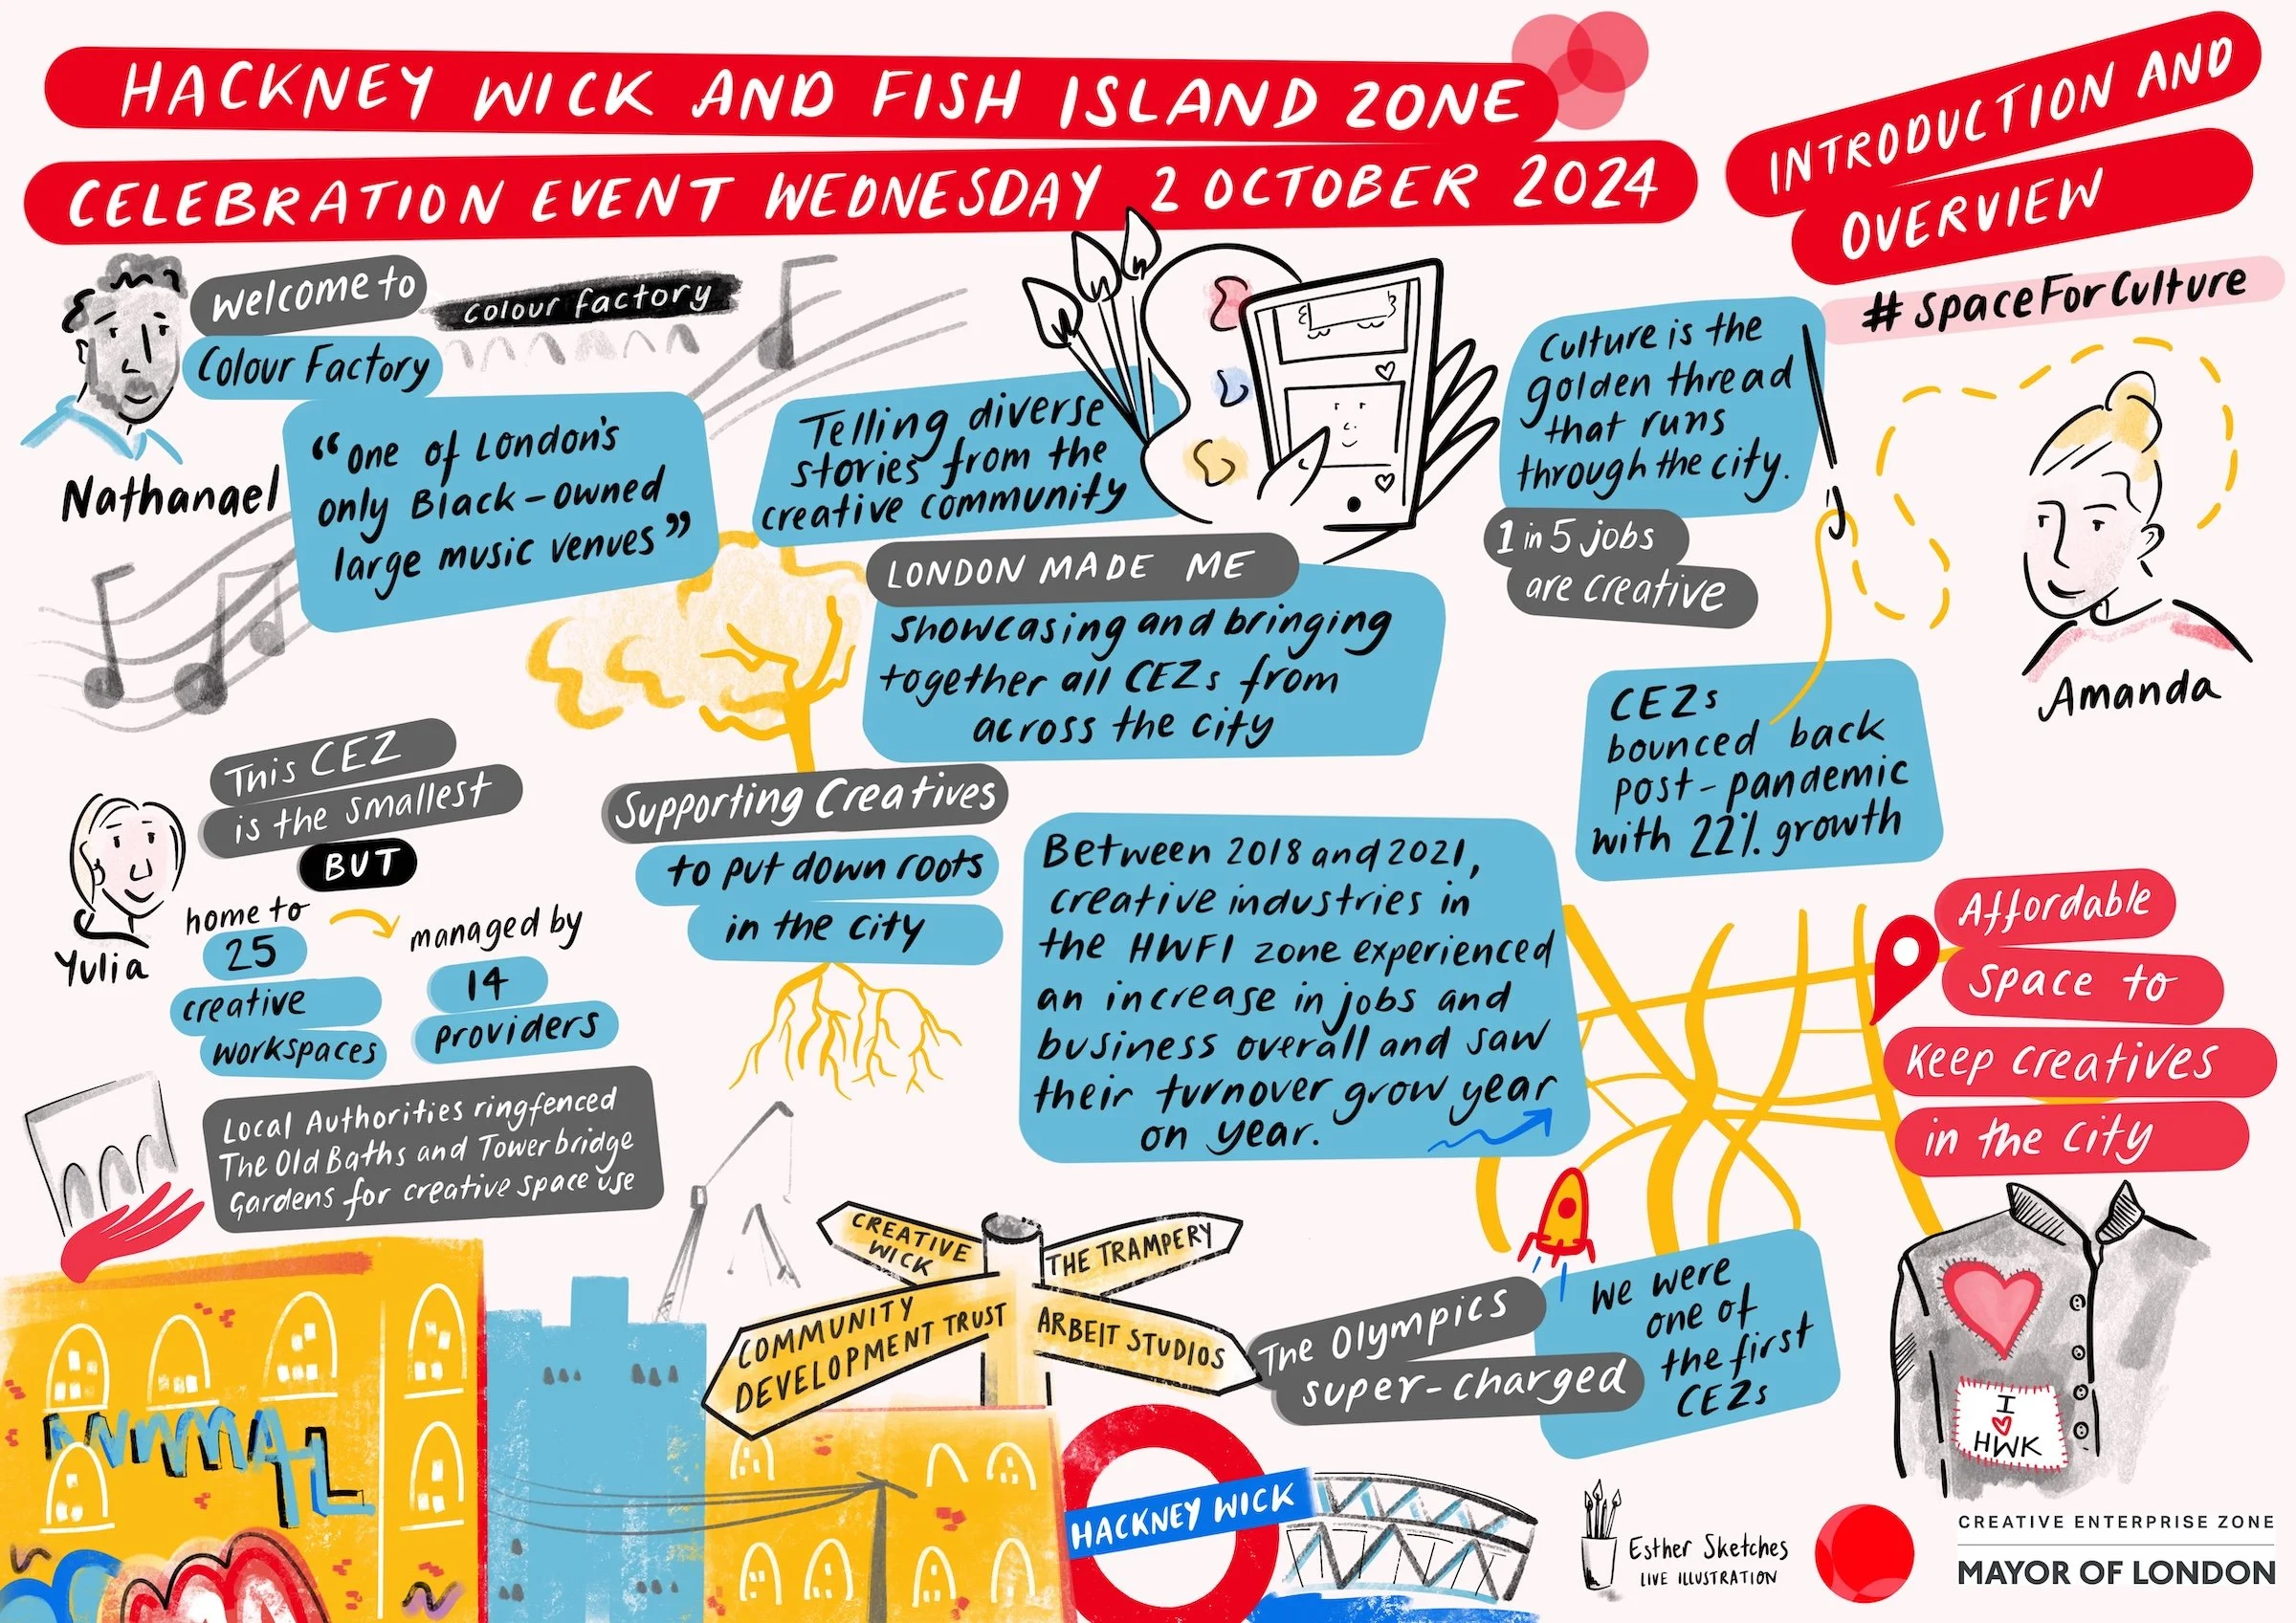 HACKNEY WICK AND FISH ISLAND ZONE
CELEBRATION EVENT WEDNESDAY 2 OCTOBER 2024
INTRODUCTION AND
OVERVIEW
#SpaceForCulture
Welcome to
Colour Factory
colour factory
Nathanael
“one of London's
only Black-owned
large music venues”
Telling diverse
stories from the
creative community
LONDON MADE ME
showcasing and bringing
together all CEZs from
across the city
Culture is the
golden thread
that runs
through the city.
1 in 5 jobs
are creative
Amanda
CEZs
bounced back
post-pandemic
with 22% growth
This CEZ
is the smallest
BUT
Yulia
home to
25
creative
workspaces
managed by
14
providers
Local Authorities ringfenced
The Old Baths and Tower bridge
Gardens for creative space use
Supporting Creatives
to put down roots
in the city
Between 2018 and 2021,
creative industries in
the HWFI zone experienced
an increase in jobs and
business overall and saw
their turnover grow year
on year.
Affordable
space to
Keep creatives
in the city
CREATIVE
WICK
THE TRAMPERY
COMMUNITY
DEVELOPMENT TRUST
ARBEIT STUDIOS
The Olympics
super-charged
We were
one of
the first
CEZs
I
HWK
HACKNEY WICK
Esther Sketches
LIVE ILLUSTRATION
CREATIVE ENTERPRISE ZONE
MAYOR OF LONDON